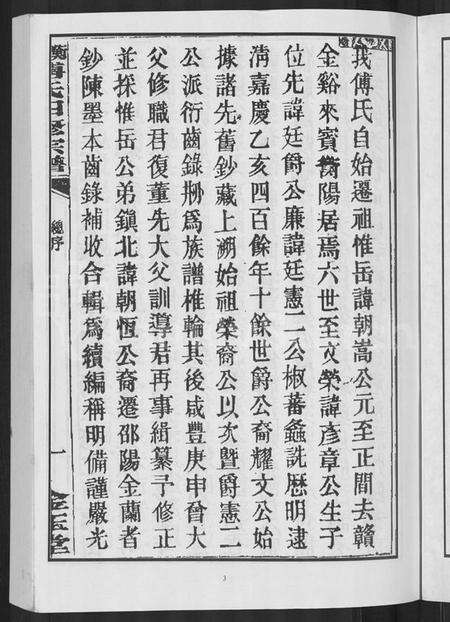 我傅氏自始遷祖惟岳諱朝嵩公元至正間去贛
金谿來賓衡陽居焉六世至文榮諱彥章公生子
位先諱廷爵公廉諱廷憲二公椒蕃螽詵歷明逮
淸嘉慶乙亥四百餘年十餘世爵公裔耀文公始
據諸先舊鈔藏上溯始祖榮裔公以次暨爵憲二
公派衍齒錄刱爲族譜椎輪其後咸豐庚申晉大
父修職君復董先大父訓導君再事緝纂予修正
並採惟岳公弟鎭北諱朝恆公裔遷邵陽金蘭者
鈔陳墨本齒錄補收合輯爲續編稱明備謹嚴光
衡傅氏四修宗譜
總序
一
金玉堂
3